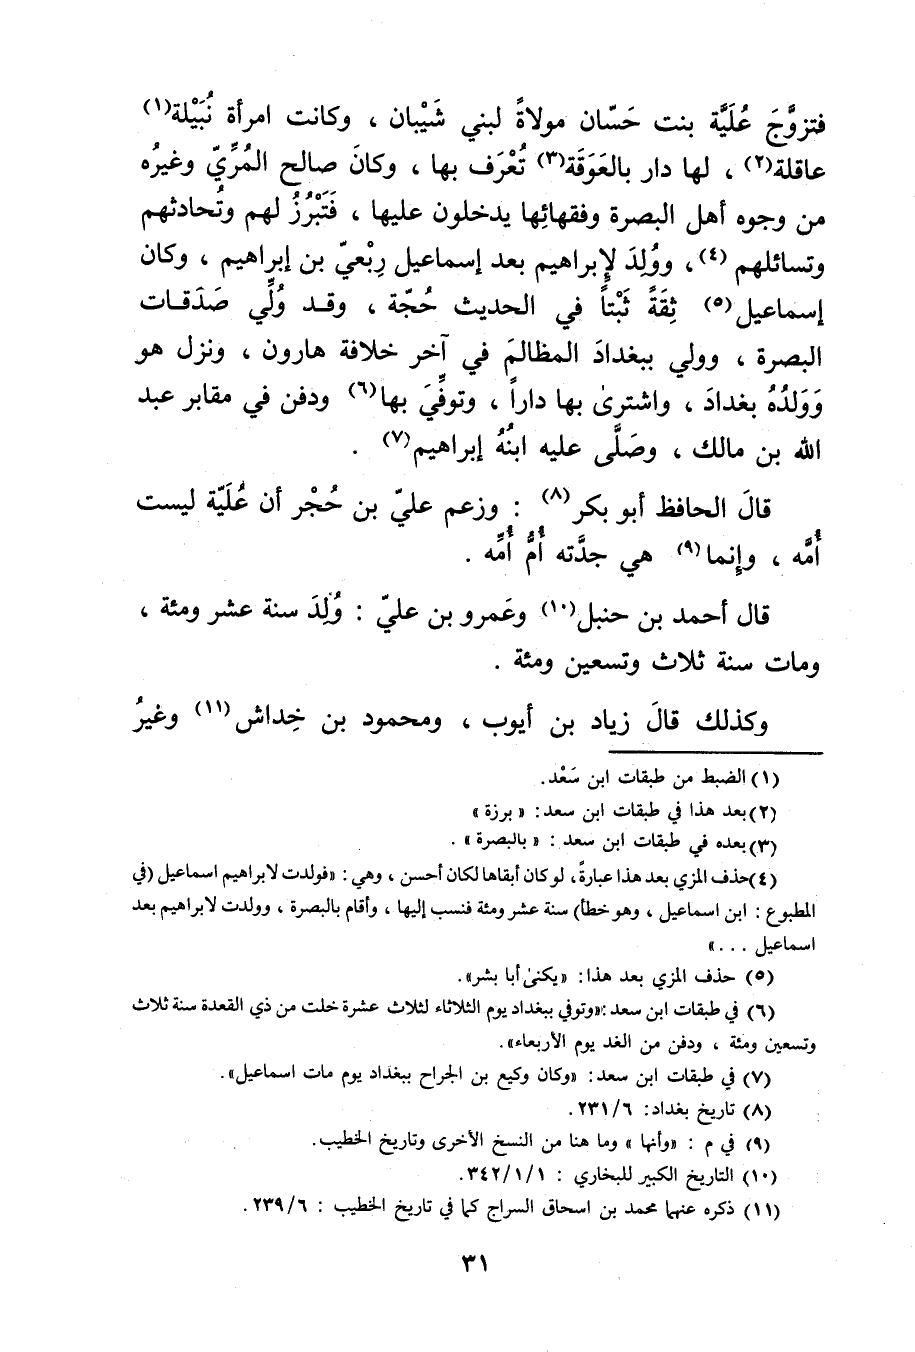 فتزوَّجَ عُلَيَّة بنت حَسّان مولاةً لبني شَيْبان ، وكانت امرأة نُبَيْلة(١)
عاقلة(٢) ، لها دار بالعَوَقَة(٣) تُعْرَف بها ، وكانَ صالح المُرِّيّ وغيرُه
من وجوه أهل البصرة وفقهائِها يدخلون عليها ، فَتَبْرُزُ لهم وتُحادثهم
وتسائلهم (٤)، ووُلِدَ لإبراهيم بعد إسماعيل رِبْعيّ بن إبراهيم ، وكان
إسماعيل(٥) ثِقَةً ثَبْتاً في الحديث حُجّة ، وقد وُلِّي صَدَقات
البصرة ، وولي ببغدادَ المظالمَ في آخر خلافة هارون ، ونزل هو
وَوَلَدُهُ بغدادَ ، واشترىٰ بها داراً ، وتوفِّيَ بها(٦) ودفن في مقابر عبد
الله بن مالك ، وصَلَّى عليه ابنُهُ إبراهيم(٧) .
قالَ الحافظ أبو بكر(٨) : وزعم عليّ بن حُجْر أن عُلَيّة ليست
أُمَّه ، وإنما(٩) هي جدَّته أُمُّ أُمِّه .
قال أحمد بن حنبل(١٠) وعَمرو بن عليّ : وُلِدَ سنة عشر ومئة ،
ومات سنة ثلاث وتسعين ومئة .
وكذلك قالَ زياد بن أيوب ، ومحمود بن خِداش(١١) وغيرُ
(١) الضبط من طبقات ابن سَعْد.
(٢) بعد هذا في طبقات ابن سعد: « برزة »
(٣) بعده في طبقات ابن سعد : « بالبصرة » .
(٤) حذف المزي بعد هذا عبارةً، لو كان أبقاها لكان أحسن ، وهي : «فولدت لابراهيم اسماعيل (في
المطبوع : ابن اسماعيل ، وهو خطأ) سنة عشر ومئة فنسب إليها ، وأقام بالبصرة ، وولدت لابراهيم بعد
اسماعيل . . .»
(٥) حذف المزي بعد هذا: «يكنىٰ أبا بشر».
(٦) في طبقات ابن سعد :«وتوفي ببغداد يوم الثلاثاء لثلاث عشرة خلت من ذي القعدة سنة ثلاث
وتسعين ومئة ، ودفن من الغد يوم الأربعاء».
(٧) في طبقات ابن سعد: «وكان وكيع بن الجراح ببغداد يوم مات اسماعيل».
(٨) تاريخ بغداد: ٢٣١/٦.
(٩) في م : «وأنها » وما هنا من النسخ الأخرى وتاريخ الخطيب.
(١٠) التاريخ الكبير للبخاري : ٣٤٢/١/١.
(١١) ذكره عنهما محمد بن اسحاق السراج كما في تاريخ الخطيب : ٢٣٩/٦.
٣١